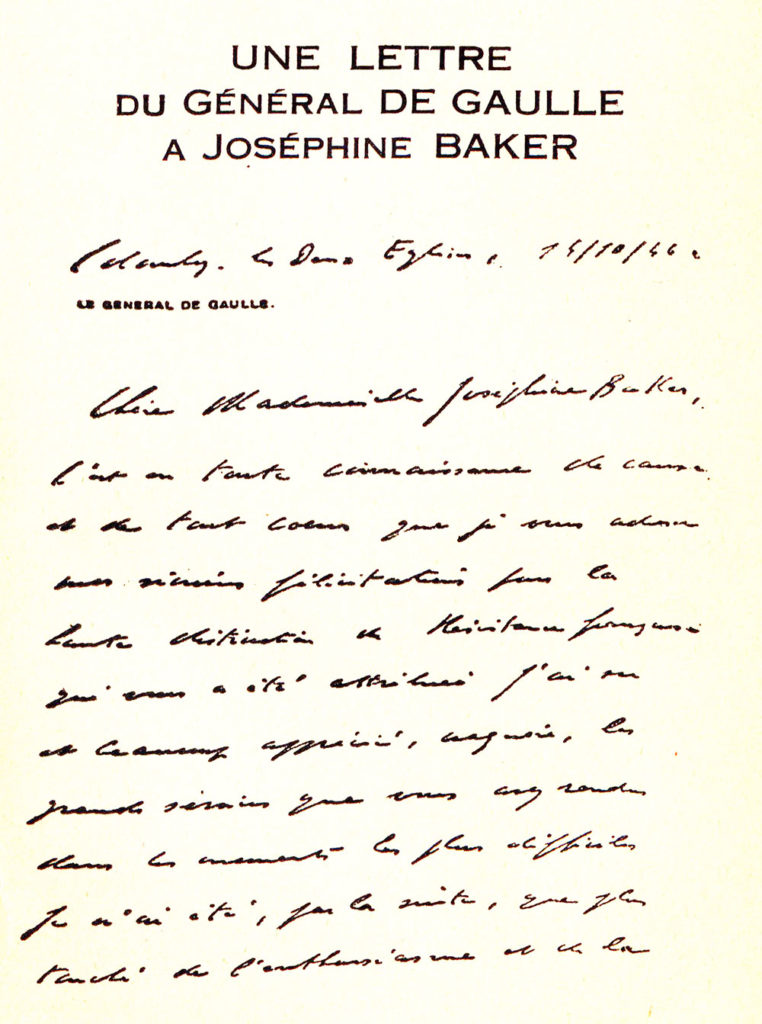 UNE LETTRE
DU GÉNÉRAL DE GAULLE
A JOSÉPHINE BAKER
Colombey. les Deux Eglises, 14/10/46.
LE GENERAL DE GAULLE.
Chère Mademoiselle Joséphine Baker,
C'est en toute connaissance de cause
et de tout coeur que je vous adresse
mes sincères félicitations pour la
haute distinction de Résistance française
qui vous a été attribuée J'ai vu
et beaucoup apprécié, naguère, les
grands services que vous avez rendus
dans les moments les plus difficiles
Je n'ai été, par la suite, que plus
touché de l'enthousiasme et de la